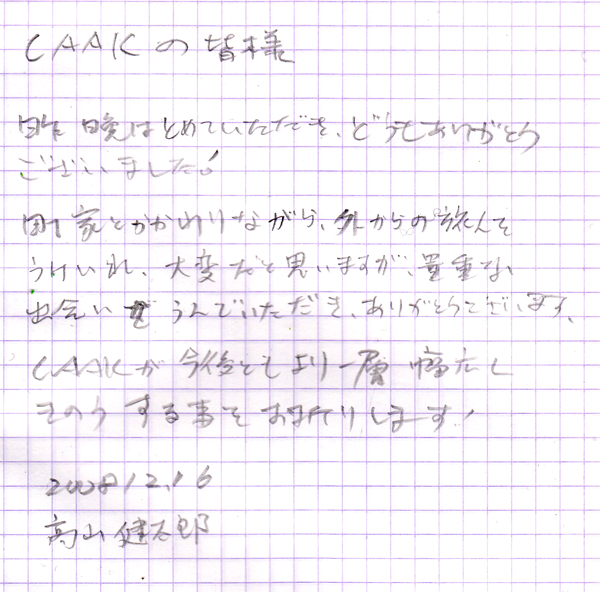 CAAKの皆様
昨晩はとめていただき、どうもありがとう
ございました!
町家とかかわりながら、外からの旅人を
うけいれ、大変だと思いますが、貴重な
出会いをうんでいただき、ありがとうございます。
CAAKが今後ともより一層幅広く
きのうする事をお祈りします!
2008/12/16
高山健太郎